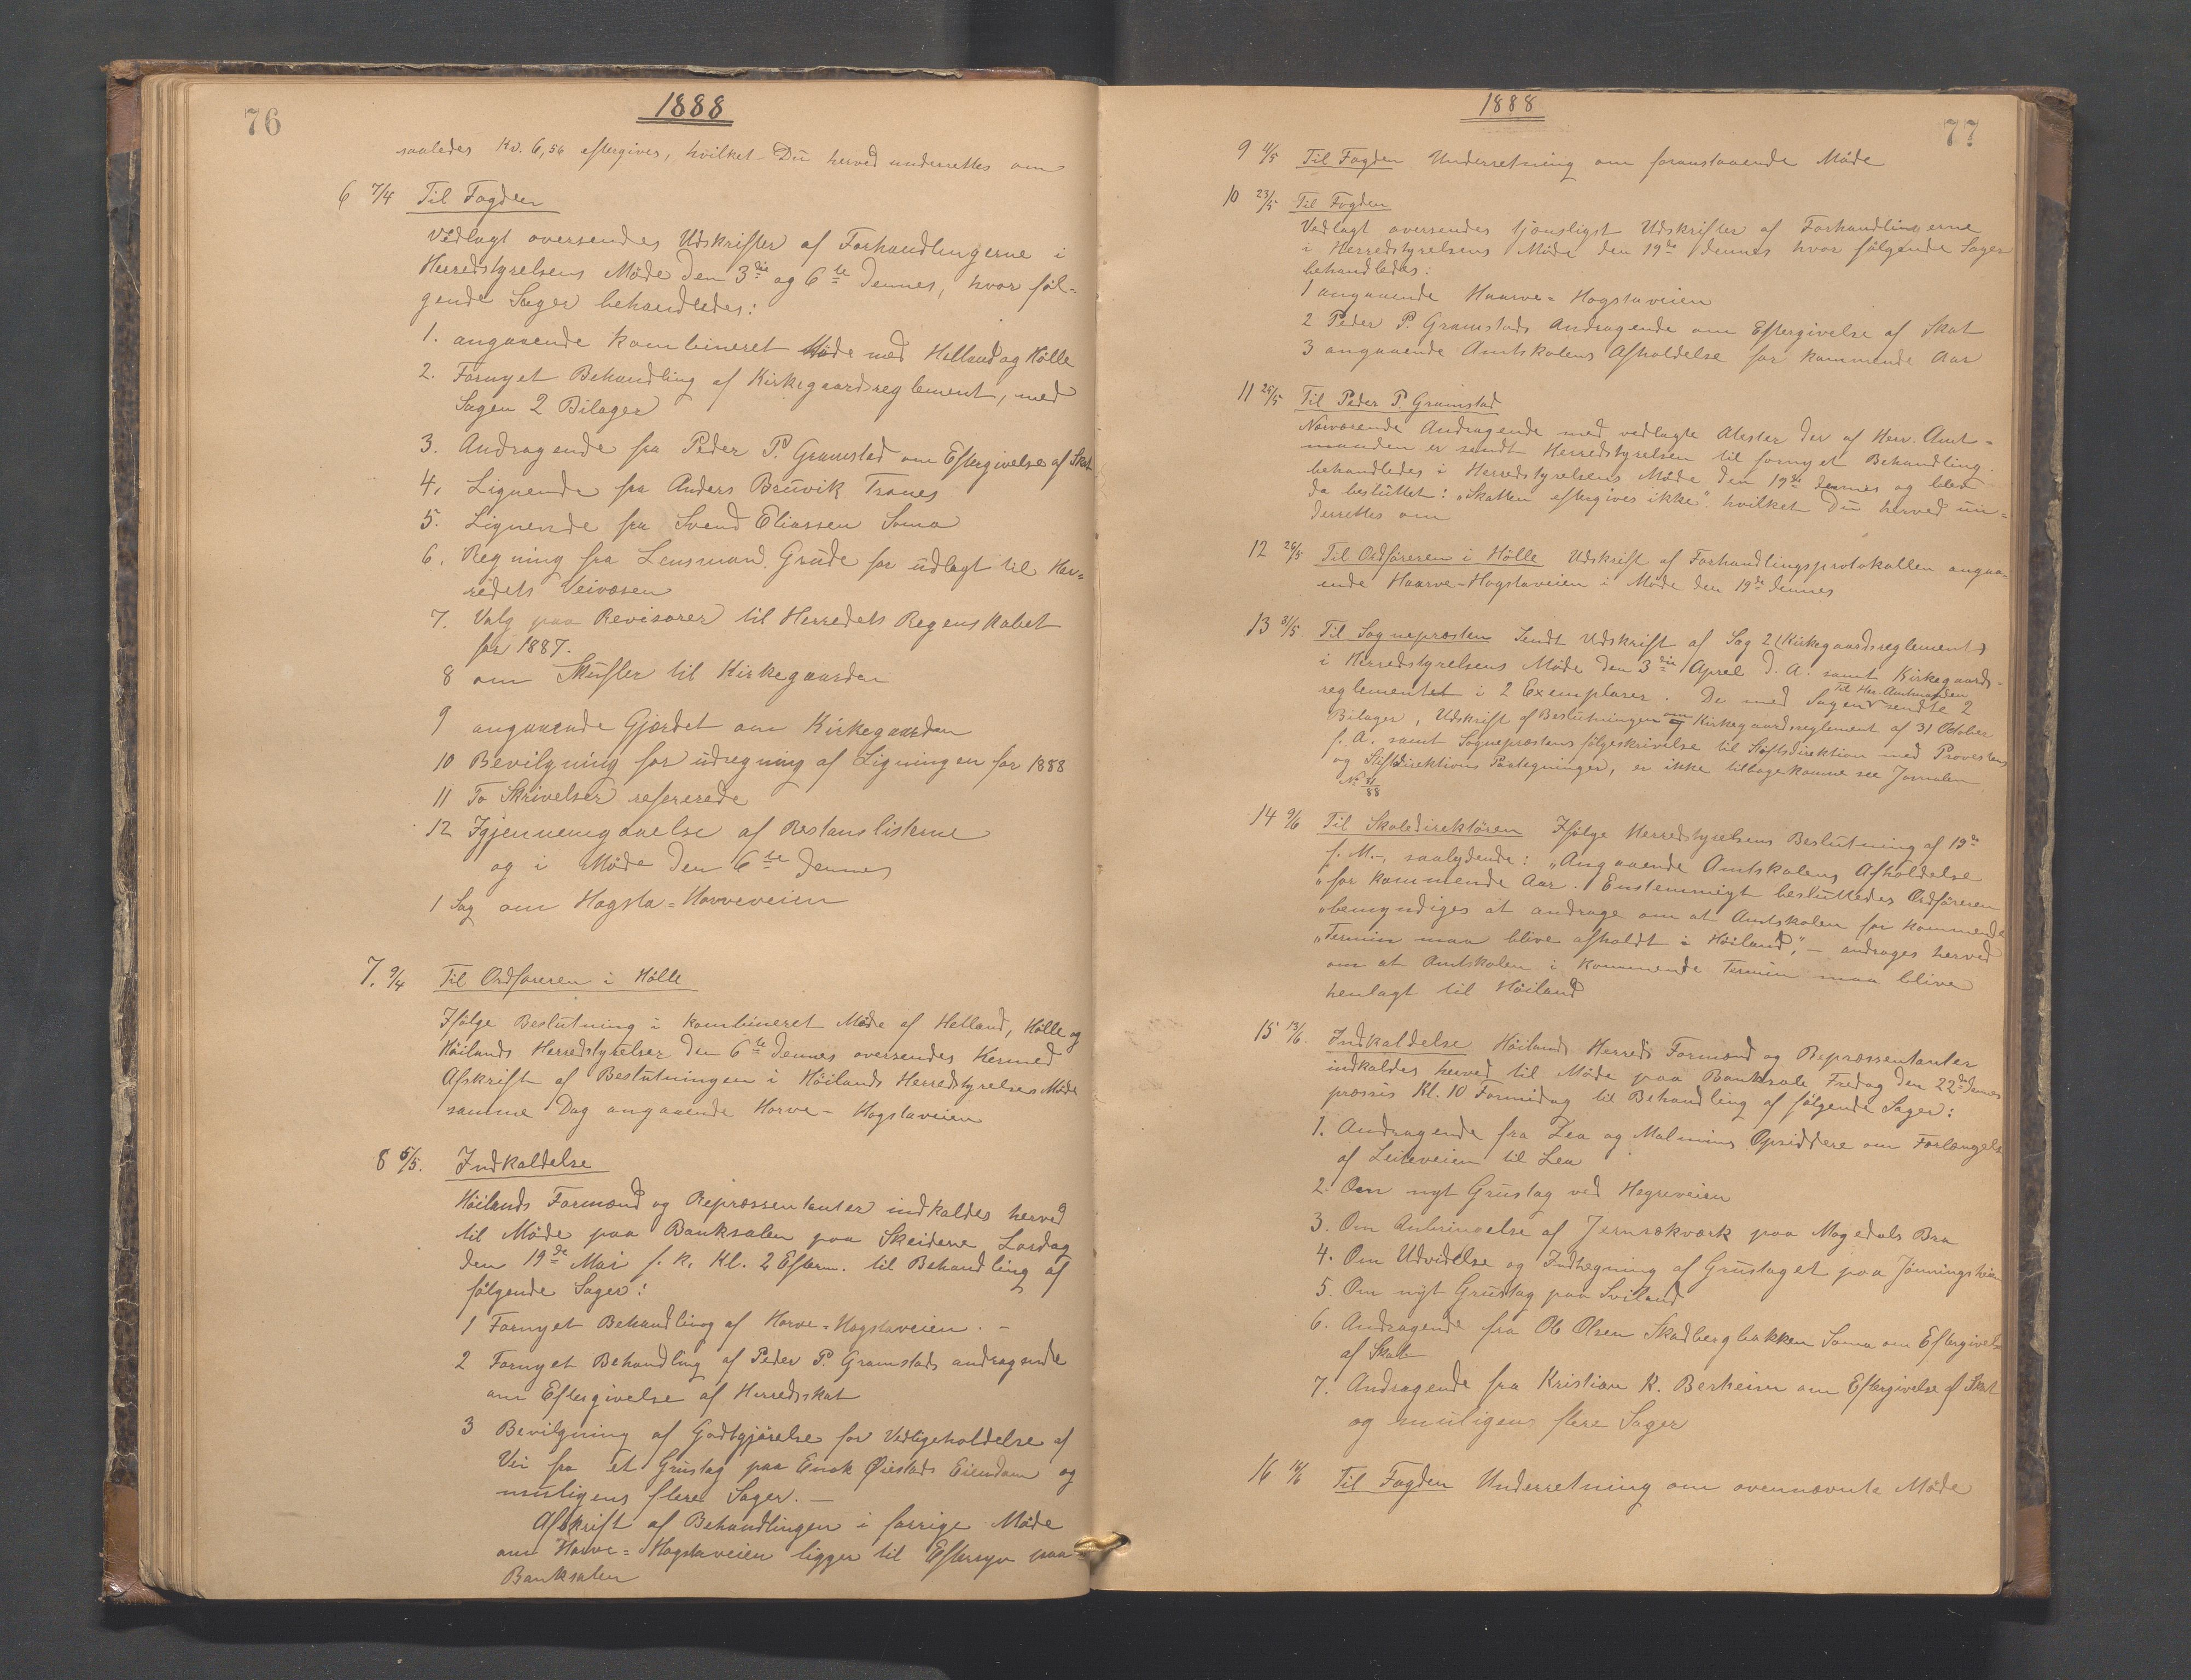 76
1888
saaledes Kr. 6,56 eftergives, hvilket Du herved underrettes om
6 7/4 Til Fogden
Vedlagt oversendes Udskrifter af Forhandlingerne i
Herredstyrelsens Møde den 3die og 6te dennes, hvor føl-
gende Sager behandledes:
1. angaaende kombineret Møde med Hetland og Hølle
2. Fornyet Behandling af Kirkegaardsreglement, med
Sagen 2 Bilager
3. Andragende fra Peder P. Gramstad om Eftergivelse af Skat
4. Lignende fra Anders Bruvik Tranes
5. Lignende fra Svend Eliassen Soma
6. Regning fra Lensmand Grude for udlagt til Her-
redets Veivæsen
7. Valg paa Revisorer til Herredets Regenskabet
for 1887.
8 om Skufler til Kirkegaarden
9 angaaende Gjærdet om Kirkegaarden
10 Bevilgning for udregning af Ligningen for 1888
11 To Skrivelser refererede
12 Igjennemgaaelse af Restanslisterne
og i Møde den 6te dennes
1 Sag om Hogsta-Horveveien
7. 9/4 Til Ordføreren i Hølle
Ifølge Beslutning i kombineret Møde af Hetland, Hølle og
Høilands Herredstyrelser den 6te dennes oversendes Hermed
Afskrift af Beslutningen i Høilands Herredstyrelses Møde
samme Dag angaaende Horve-Hogstaveien
8 5/5. Indkaldelse
Høilands Formænd og Repræssentanter indkaldes herved
til Møde paa Banksalen paa Skeiderne Lørdag
den 19de Mai f. k. Kl. 2 Efterm. til Behandling af
følgende Sager:
1 Fornyet Behandling af Horve-Hogstaveien. -
2 Fornyet Behandling af Peder P. Gramstads andragende
om Eftergivelse af Herredsskat
3 Bevilgning af Godtgjørelse for Vedligeholdelse af
Vei fra et Grustag paa Enok Øiestads Eiendom og
muligens flere Sager. -
Afskrift af Behandlingen i forrige Møde
om Horve-Hogstaveien ligger til Eftersyn paa
Banksalen
77
1888
9 11/5 Til Fogden Underretning om foranstaaende Møde
10 23/5 Til Fogden
Vedlagt oversendes tjænsligst Udskrifter af Forhandlingerne
i Herredstyrelsens Møde den 19de dennes hvor følgende Sager
behandledes:
1 angaaende Haarve-Hogstaveien
2 Peder P. Gramstads Andragende om Eftergivelse af Skat
3 angaaende Amtskolens Afholdelse for kommende Aar
11 25/5 Til Peder P. Gramstad
Nærværende Andragende med vedlagte Atester der af Herr. Amt-
manden er sendt Herredstyrelsen til fornyet Behandling.
behandledes i Herredstyrelsens Møde den 19de dennes og blev
da besluttet: "Skatten eftergives ikke". hvilket Du herved un-
derrettes om
12 26/5 Til Ordføreren i Hølle Udskrift af Forhandlingsprotokollen angaa-
ende Haarve-Hogstaveien i Møde den 19de dennes
13 31/5 Til Sognepræsten Sendt Udskrift af Sag 2 (Kirkegaardsreglement)
i Herredstyrelsens Møde den 3die Aprel d. A. samt Kirkegaards-
reglementet i 2 Exemplarer. De med Sagen Til Her. Amtmanden sendte 2
Bilager, Udskrift af Beslutningen om Kirkegaardsreglement af 31 October
f. A. samt Sognepræstens følgeskrivelse til Stiftsdirektion med Provestens
og Stiftsdirektions Paategninger, er ikke tilbagekomne see Jornalen
No 31/88
14 9/6 Til Skoledirektøren Ifølge Herredstyrelsens Beslutning af 19de
f. M.-, saalydende: "Angaaende Amtskolens Afholdelse
"for kommende Aar. Enstemmigt besluttedes Ordføreren
"bemyndiges at andrage om at Amtskolen for kommende
"Termin maa blive afholdt i Høiland", - andrages herved
om at Amtskolen i kommende Termin maa blive
henlagt til Høiland
15 13/6. Indkaldelse Høilands Herreds Formænd og Repræssentanter
indkaldes herved til Møde paa Banksale Fredag den 22de dennes
præssis Kl. 10 Formidag til Behandling af følgende Sager:
1. Andragende fra Lea og Malmins Opsiddere om Forlængelse
af Leiteveien til Lea
2. Om nyt Grustag ved Hegreveien
3. Om Anbringelse af Jernrækværk paa Mogedals Bro
4. Om Udvidelse og Indhegning af Grustaget paa Jønningsheien
5. Om nyt Grustag paa Sviland
6. Andragende fra Ole Olsen Skadbergbakken Soma om Eftergivelse
af Skat
7. Andragende fra Kristian K. Berheim om Eftergivelse af Skat
og muligens flere Sager
16 16/6 Til Fogden Underretning om ovennævnte Møde